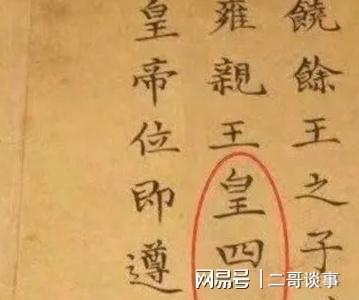 饒餘王之子
雍親王皇四
皇帝位即遵
网易号 | 二哥谈事